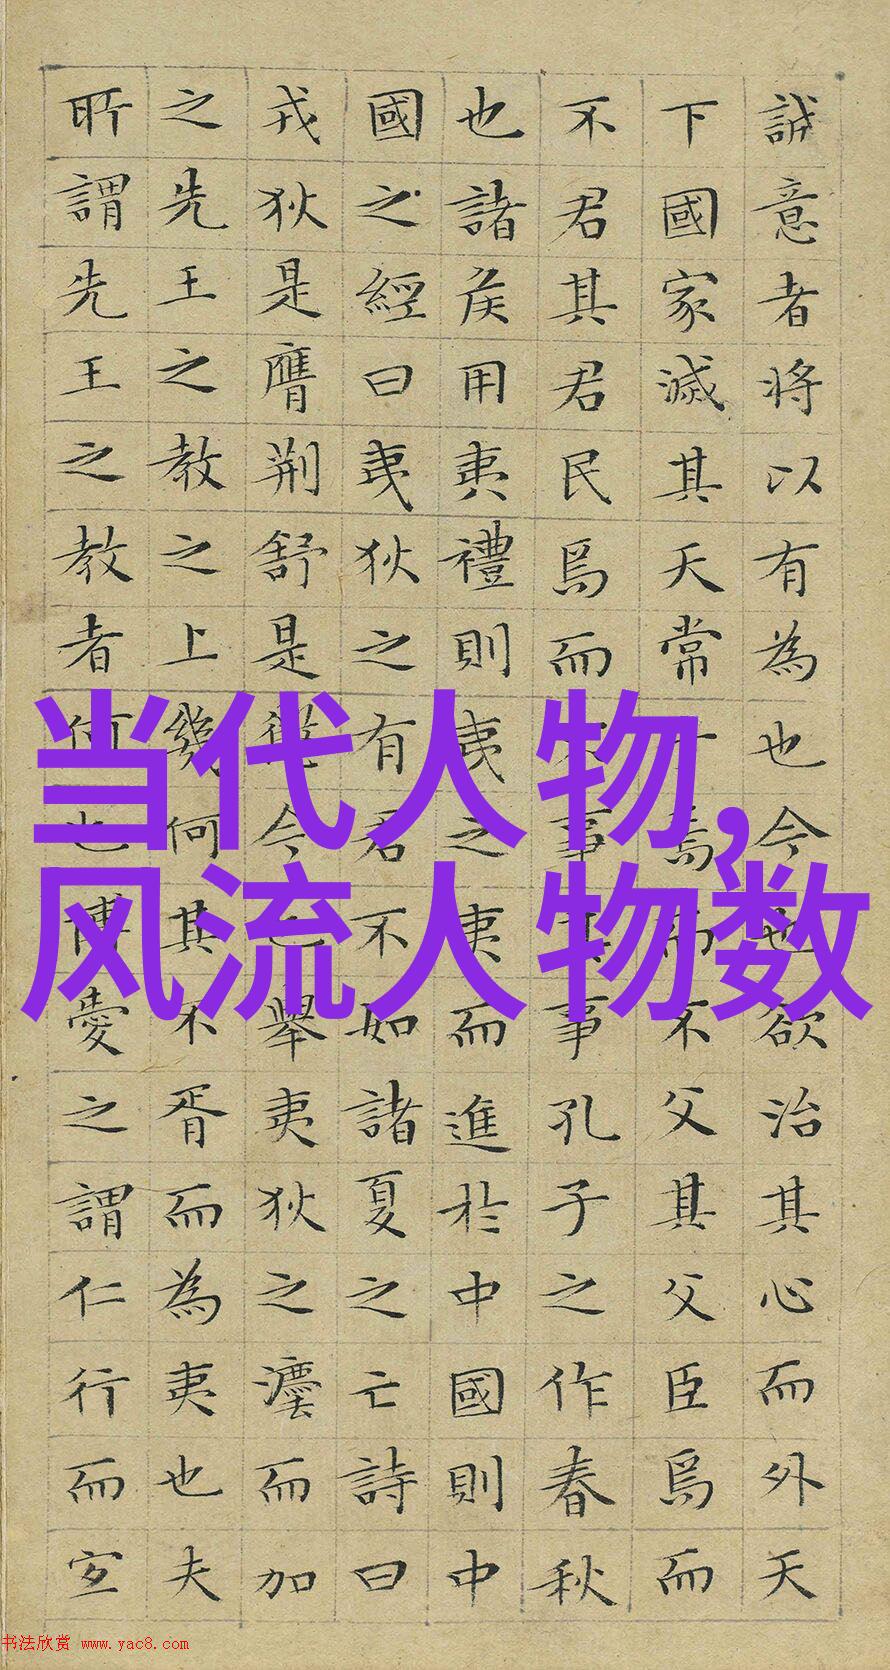 誠意者将以有為也今也欲治其心而外天
下國家滅其天常子焉而不父其父臣焉而
不君其君民焉而不事其事孔子之作春秋
也諸侯用夷禮則夷之夷而進於中國則中
國之經曰夷狄之有君不如諸夏之亡詩曰
戎狄是膺荆舒是懲今也舉夷狄之灋而加
之先王之教之上幾何其不胥而為夷也夫
所謂先王之教者何也博愛之謂仁行而宜
当代人物,
风流人物数
书法欣赏 www.yac8.com